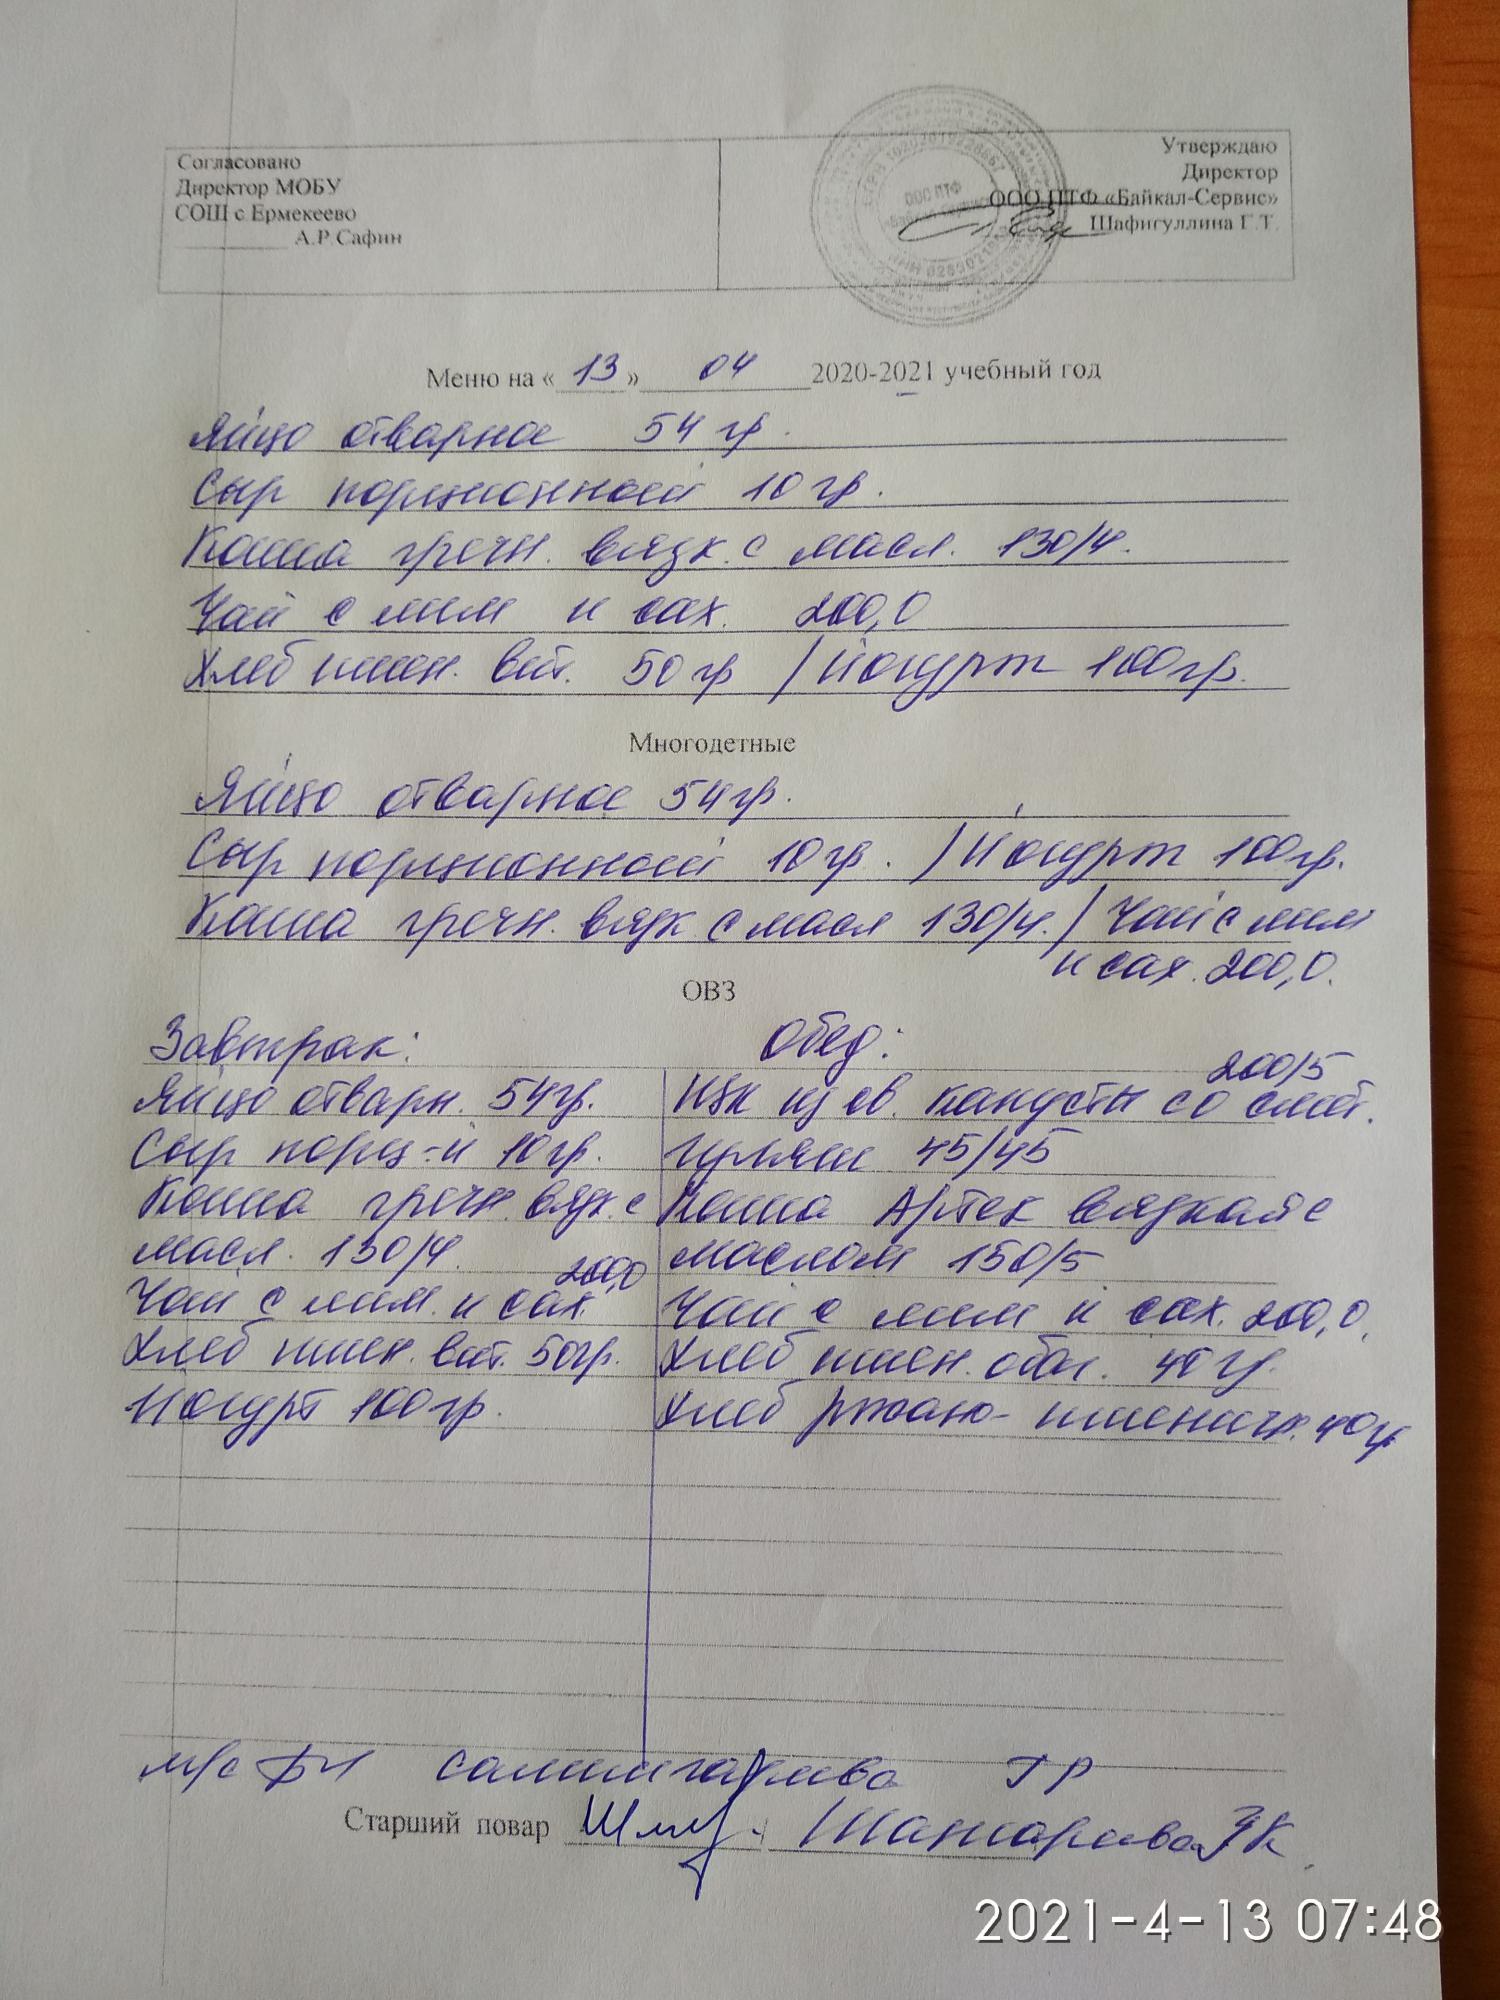 Согласовано
Директор МОБУ
СОШ с Ермекеево
А.Р.Сафин
Утверждаю
Директор
ООО ПТФ «Байкал-Сервис»
Шафигуллина Г.Т.
ООО ПТФ
Меню на « 13 » 04 2020-2021 учебный год
Яйцо отварное 54 гр.
Сыр порционной 10 гр.
Каша гречн. вязк. с масл. 130/4.
Чай с лим и сах. 200,0
Хлеб пшен. вит. 50 гр / Йогурт 100 гр.
Многодетные
Яйцо отварное 54 гр.
Сыр порционной 10 гр. / Йогурт 100 гр.
Каша гречн. вязк с масл 130/4. / Чай с лим
и сах. 200,0.
ОВЗ
Завтрак:
Яйцо отварн. 54 гр.
Сыр порц-й 10 гр.
Каша гречн. вязк. с
масл. 130/4.
Чай с лим. и сах 200,0
Хлеб пшен. вит. 50 гр.
Йогурт 100 гр.
Обед:
из св. капусты со смет. 200/5
45/45
Каша Артек вязкая с
маслом 150/5
Чай с лим и сах. 200,0.
Хлеб пшен. обог. 40 гр.
Хлеб ржано-пшеничн. 40 гр
м/с ГР
Старший повар
2021-4-13 07:48